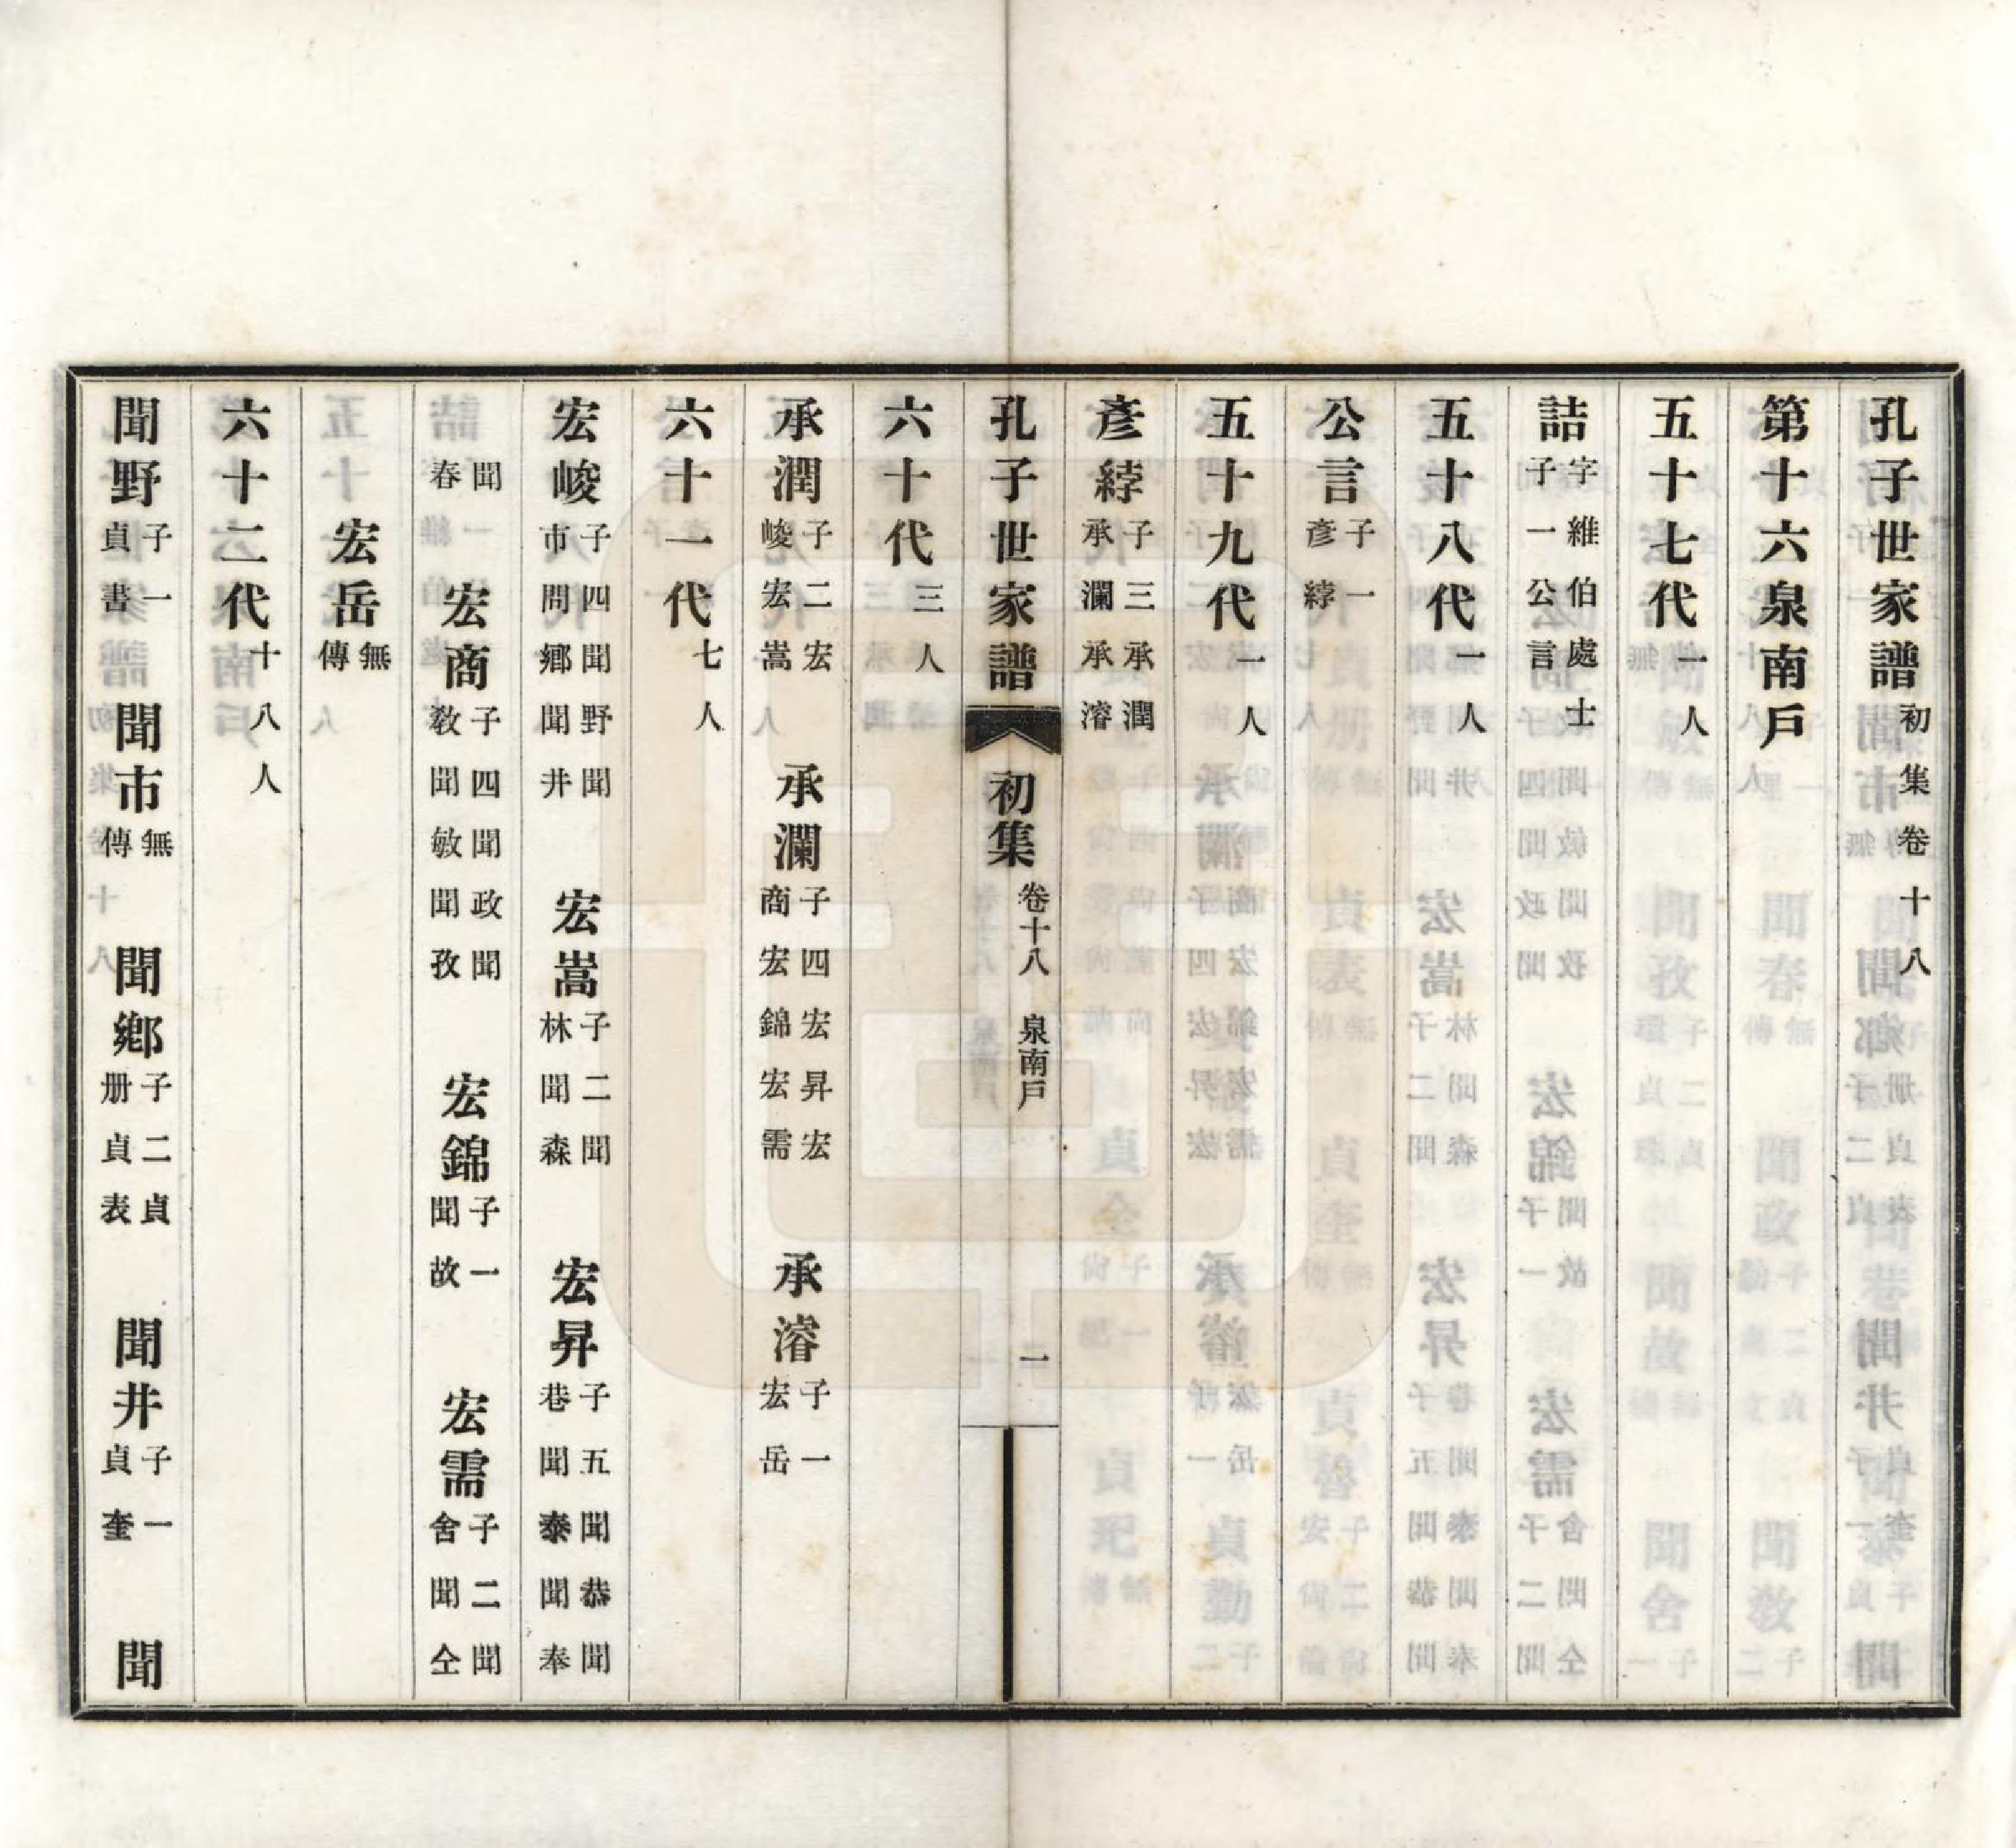 孔子世家譜初集卷十八
第十六泉南戶
五十七代一人
詰字維伯處士子一公言
五十八代一人
公言子一彥綍
五十九代一人
彥綍子三承潤承瀾承濬
孔子世家譜 初集 卷十八 泉南戶 一
六十代三人
承潤子二宏峻宏嵩 承瀾子四宏商宏錦宏昇宏需 承濬子一宏岳
六十一代七人
宏峻子四聞野聞市問鄉聞井 宏嵩子二聞林聞森 宏昇子五聞巷聞泰聞恭聞奉聞春
宏商子四聞政聞教聞敏聞孜 宏錦子一聞故 宏需子二聞舍聞仝
宏岳無傳
六十二代十八人
聞野子一貞書 聞市無傳 聞鄉子二貞册貞表 聞井子一貞奎 聞